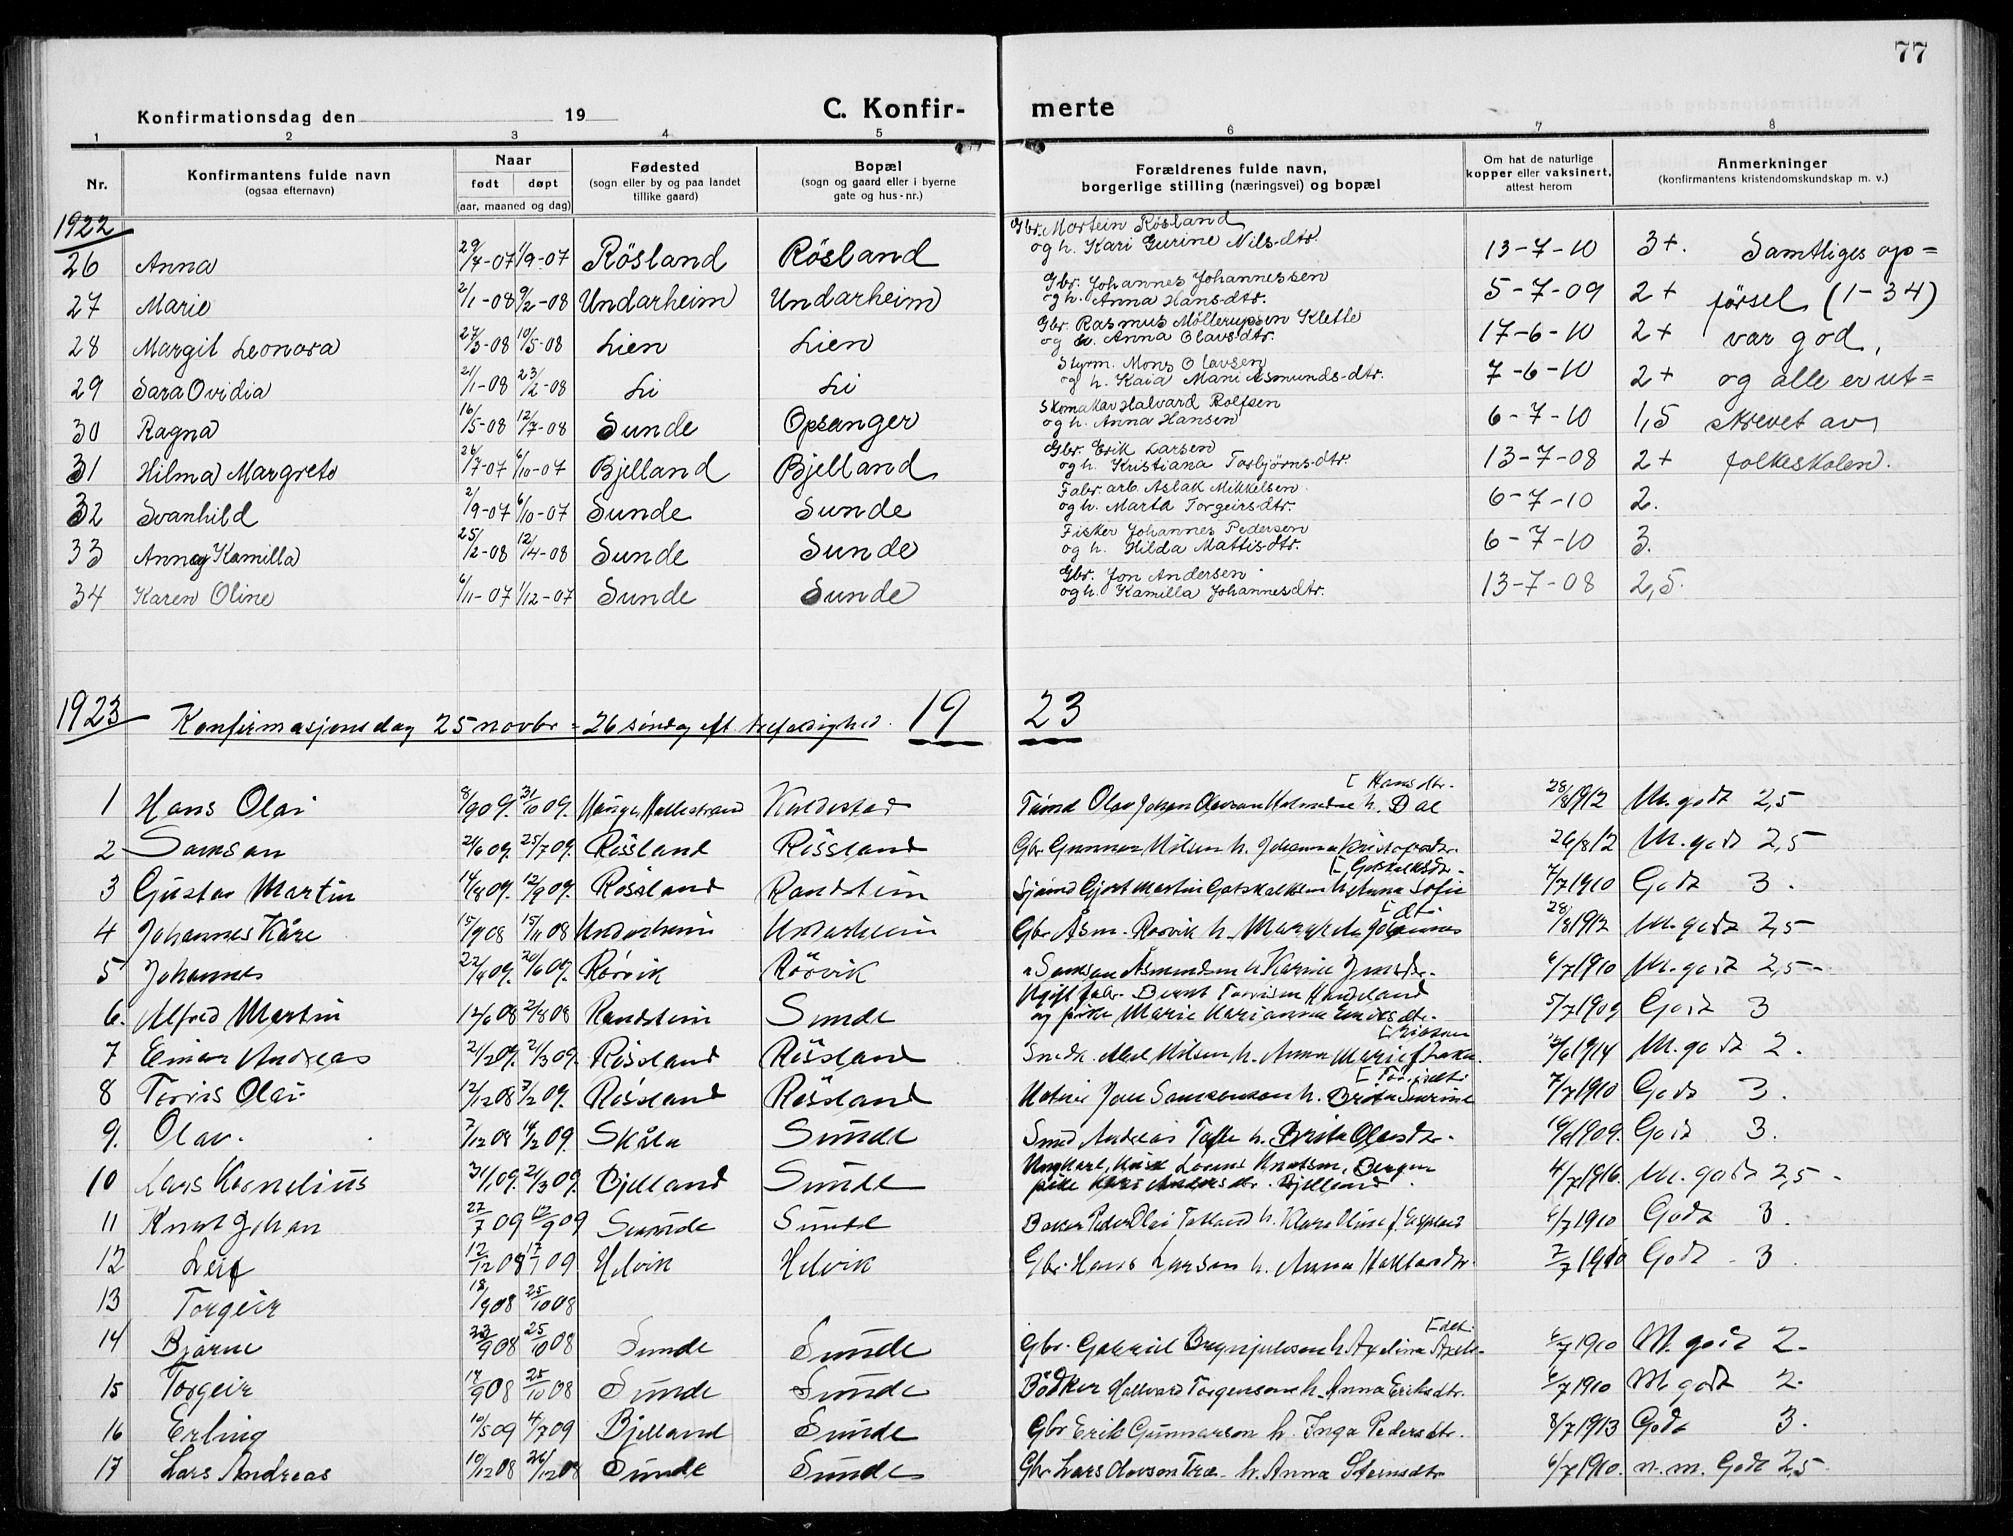 77
Konfirmationsdag den 19 C. Konfir- merte
1 2 3 4 5 6 7 8
Nr. Konfirmantens fulde navn (ogsaa efternavn) Naar født døpt (aar, maaned og dag) Fødested (sogn eller by og paa landet tillike gaard) Bopæl (sogn og gaard eller i byerne gate og hus-nr.) Forældrenes fulde navn, borgerlige stilling (næringsvei) og bopæl Om hat de naturlige kopper eller vaksinert, attest herom Anmerkninger (konfirmantens kristendomskundskap m. v.)
1922
26 Anna 29/4-07 1/9-07 Rösland Rösland Gbr. Mortein Rösland og h. Kari Gurine Nils-dtr. 13-7-10 3+. Samtliges op=
27 Marie 2/1-08 9/2-08 Undarheim Undarheim Gbr. Johannes Johannessen og h. Anna Hans-dtr. 5-7-09 2+ førsel (1-34)
28 Margit Leonora 27/3-08 10/5-08 Lien Lien Gbr. Rasmus Möllerupsen Klette og h. Anna Olavs-dtr. 17-6-10 2+ var god,
29 Sara Ovidia 21/1-08 23/2-08 Li Li Styrm. Mons Olavsen og h. Kaia Marie Asmunds-dtr. 7-6-10 2+ og alle er ut=
30 Ragna 16/5-08 12/7-08 Sunde Opsanger Skomakar Halvard Rolfsen og h. Anna Hansen 6-7-10 1,5 skrevet av
31 Hilma Margrete 26/7-07 6/10-07 Bjelland Bjelland Gbr. Erik Larsen og h. Kristiana Torbjørns-dtr. 13-7-08 2+ folkeskolen.
32 Svanhild 2/9-07 6/10-07 Sunde Sunde Fabr. arb. Aslak Mikkelsen og h. Marta Torgeirs-dtr. 6-7-10 2.
33 Anna Kamilla 25/2-08 12/4-08 Sunde Sunde Fisker Johannes Pedersen og h. Hilda Mattis-dtr. 6-7-10 3.
34 Karen Oline 6/11-07 1/12-07 Sunde Sunde Gbr. Jon Andersen og h. Kamilla Johannesdtr. 13-7-08 2,5.
1923 Konfirmasjonsdag 25 novbr = 26 søndag eft. trefoldighed. 19 23
1 Hans Olai 8/9 09. 31/10 09. Kaldestad [Hansdtr. 28/8 1912 M. godt 2,5
2 Samson 2/6 09. 25/7 09. Rössland Rössland Gbr. Gunnar Nilsen h. Johanna 26/8 12 M. godt 2,5
3 Gustav Martin 14/8 09. 12/9 09. Rössland Randstein [Gotskalksdtr. 7/7 1910 Godt 3.
4 Johannes Kåre 15/9 08 15/11 08 Undarheim Undarheim Gbr. Åsm. Rørvik h. 28/8 1912 M. godt 2,5
5 Johannes 22/4 09. 20/6 09. Rörvik Rörvik " Samson Asmundsen h. Karine 6/7 1910 M. godt 2,5
6. Alfred Martin 12/6 08 2/8 08 Randstein Sunde og pike Marie 5/7 1909 Godt 3
7 Einar Andreas 21/2 09. 21/3 09. Rössland Rössland Nilsen h. Anna Marie 1914 M. godt 2.
8 Torris Olai 12/12 08 7/2 09. Rössland Rössland h. Brita Surine 7/7 1910 Godt 3.
9. Olav. 7/12 08 14/2 09. Skåla Sunde Smed Andreas h. Brita Olavsdtr. 1909. Godt 3.
10 Lars Kornelius 31/1 09. 21/3 09. Bjelland Sunde Ungkarl, Knutsen, Bergen pike Kari Andersdtr. Bjelland. 4/7 1916. M. godt 2,5
11 Knut Johan 22/7 09 12/9 09 Sunde Sunde Baker Peder Olai h. Klara Oline f. 6/7 1910 Godt 3.
12 Leif 12/12 08 17/1 09 Helvik Helvik Gbr. Hans Larsen h. Anna 7/7 1910 Godt 3.
13 Torgeir 18/9 08 25/10 08
14 Bjarne 23/9 08 25/10 08 Sunde Sunde Gbr. Gabriel Brynjulvsen h. Axeline Axels- [dtr. 6/7 1910 M. godt 2.
15 Torgeir 17/9 08 25/10 08 Sunde Sunde Bödker Hallvard Torgersen h. Anna Eriksdtr. 6/7 1910 M godt 2.
16 Erling 10/5 09 4/7 09 Bjelland Sunde Gbr Erik Gunnarson h. Inga Pedersdtr. 8/7 1913 Godt 3.
17 Lars Andreas 10/12 08 26/12 08 Sunde Sunde Gbr Lars Olavson Træ h. Anna Steinsdtr 6/7 1910. n. m. Godt 2,5.